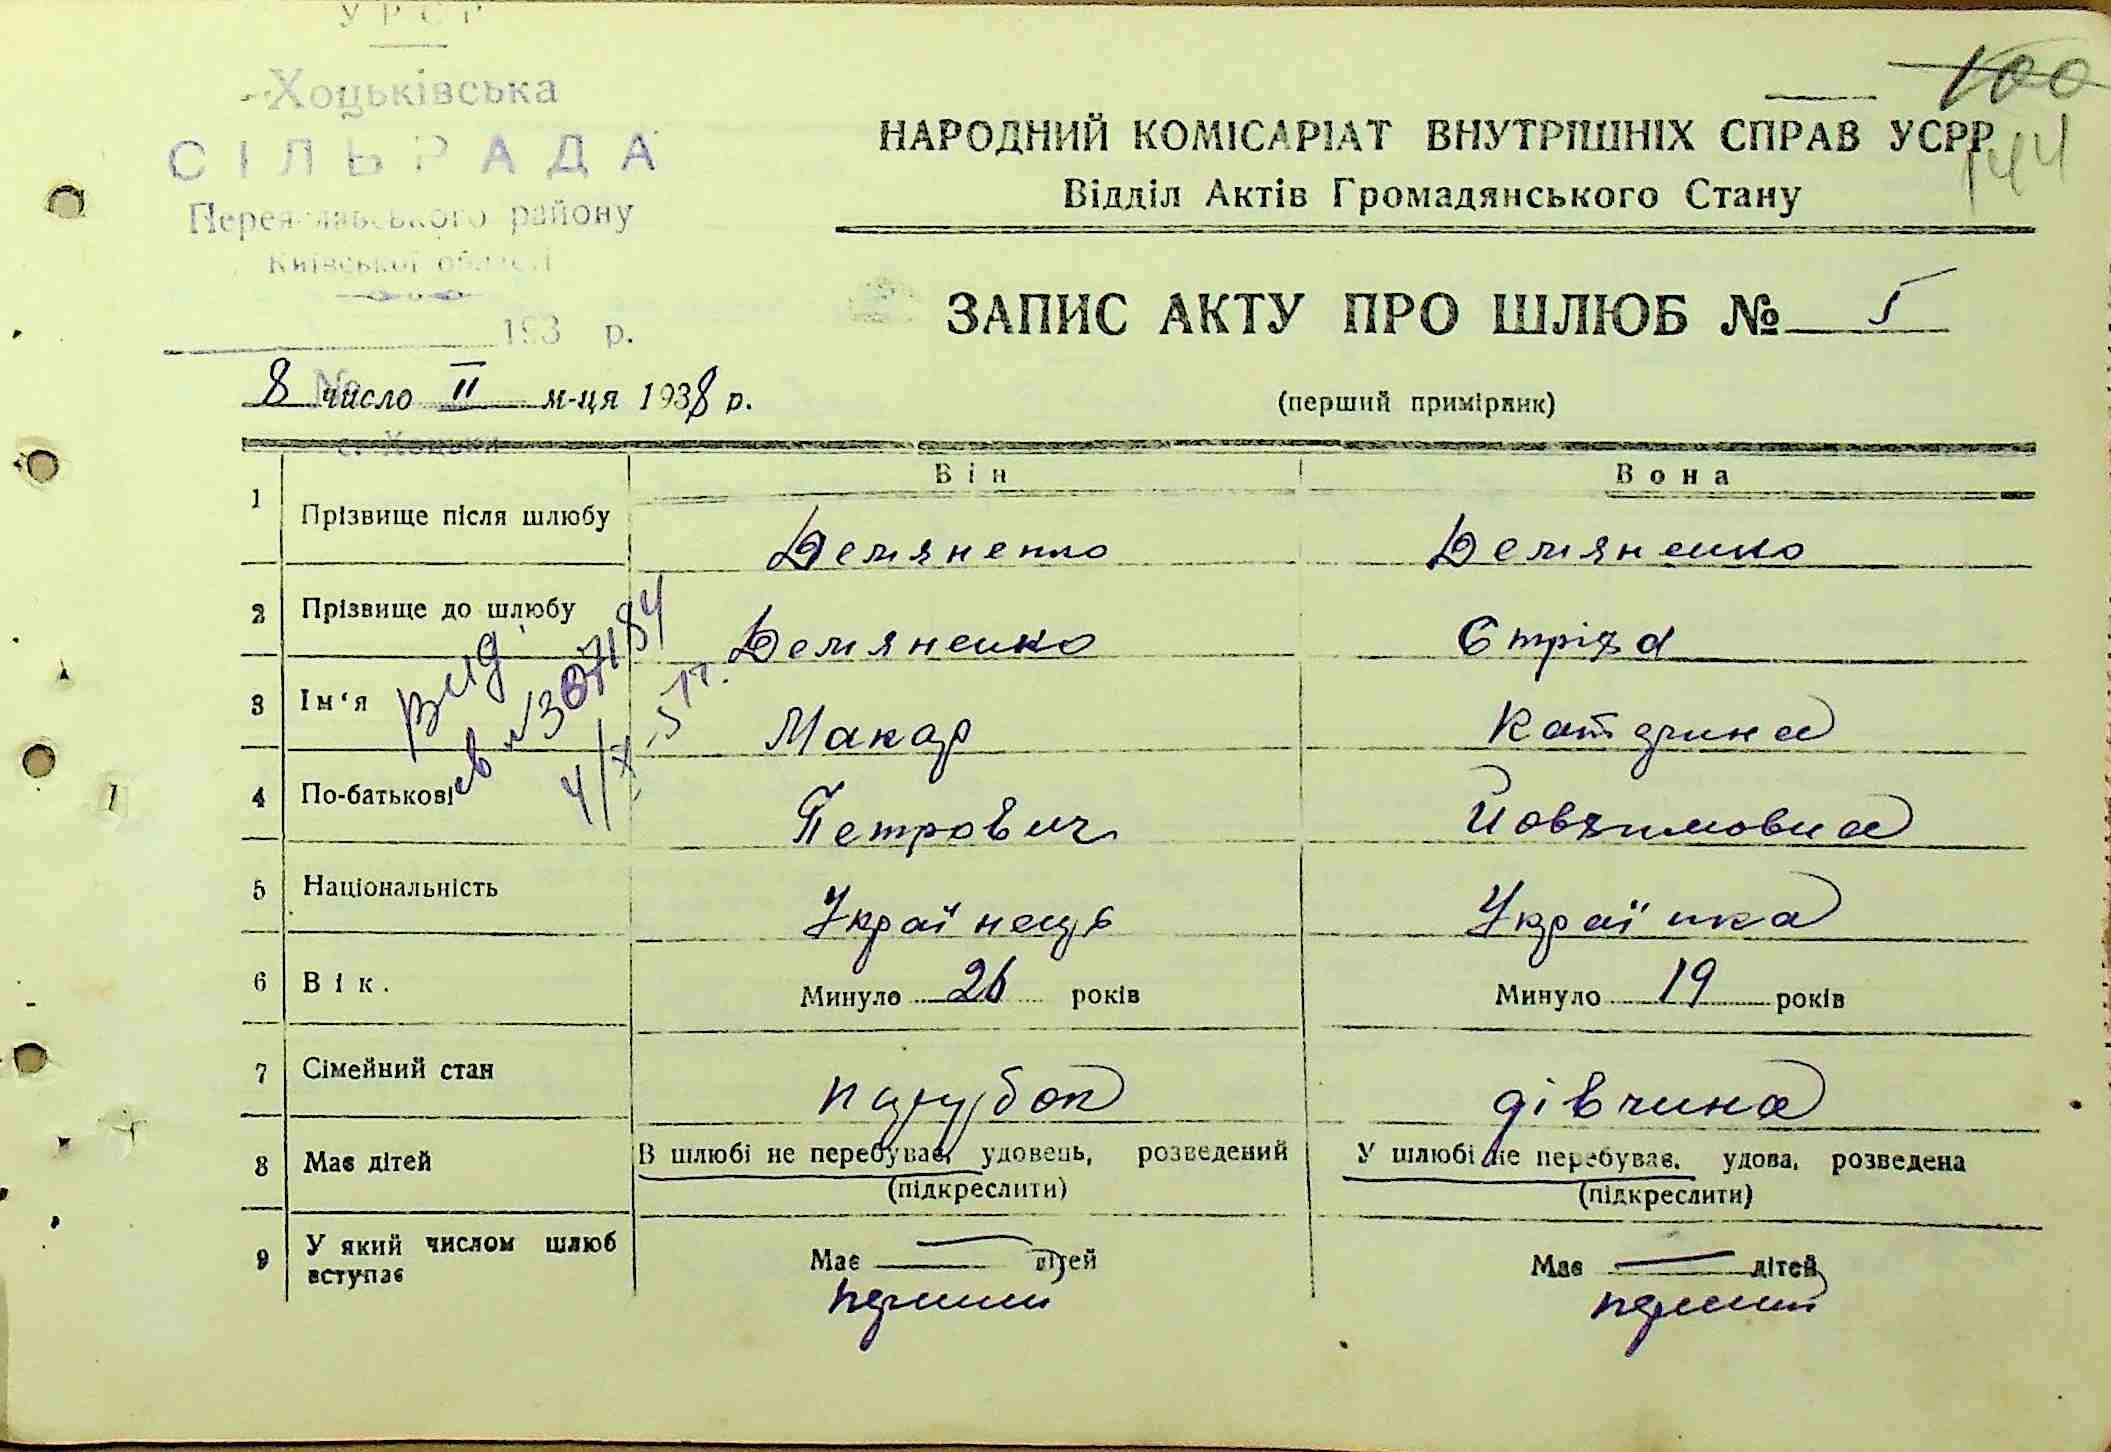 УРСР
Хоцьківська
СІЛЬРАДА
Переяславського району
Київської області
193 р.
№
с. Хоцьки
100
144
НАРОДНИЙ КОМІСАРІАТ ВНУТРІШНІХ СПРАВ УСРР
Відділ Актів Громадянського Стану
ЗАПИС АКТУ ПРО ШЛЮБ № 5
8 число II м-ця 1938 р.
(перший примірник)
Він Вона
1 Прізвище після шлюбу Демяненко Демяненко
2 Прізвище до шлюбу Демяненко Стріха
3 Ім‘я Макар Катерина
4 По-батькові Петрович Йовхимовна
5 Національність Українець Українка
6 Вік. Минуло 26 років Минуло 19 років
7 Сімейний стан парубок дівчина
8 Має дітей В шлюбі не перебуває, удовець, розведений У шлюбі не перебуває, удова, розведена
(підкреслити) (підкреслити)
9 У який числом шлюб вступає Має — дітей Має — дітей
перший перший
вид
св №307184
4/X-51г.
1